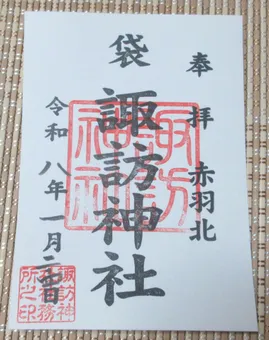 奉拝 赤羽北
袋 諏訪神社
令和八年一月二日
諏訪
神社
諏訪神
社務
所之印